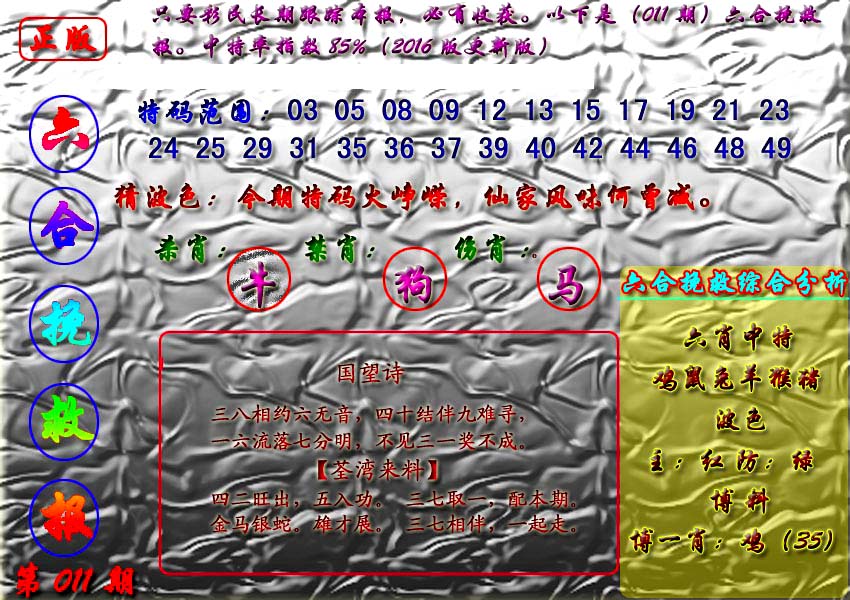 正版
只要彩民长期跟踪本报，必有收获。以下是（011期）六合挽救
报。中特率指数85%（2016版更新版）
六合挽救报
第011期
特码范围：03 05 08 09 12 13 15 17 19 21 23
24 25 29 31 35 36 37 39 40 42 44 46 48 49
猜波色：今期特码火峥嵘，仙家风味何曾减。
杀肖：牛 禁肖：狗 伤肖：马。
国望诗
三八相约六无音，四十结伴九难寻，
一六流落七分明，不见三一奖不成。
【荃湾来料】
四二旺出，五入功。 三七取一，配本期。
金马银蛇。雄才展。 三七相伴，一起走。
六合挽救综合分析
六肖中特
鸡鼠兔羊猴猪
波色
主：红防：绿
博料
博一肖：鸡（35）